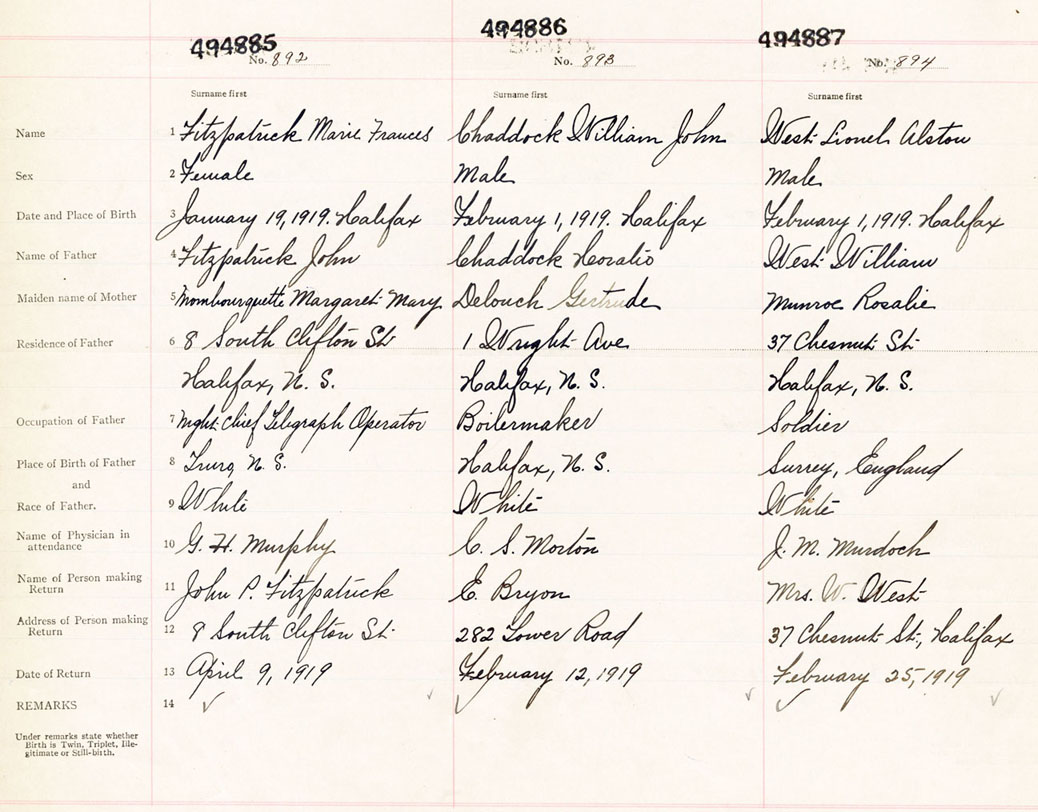 494885 494886 494887
No. 892 No. 893 No. 894
Surname first Surname first Surname first
Name 1 Fitzpatrick Marie Frances Chaddock William John West Lionel Alston
Sex 2 Female Male Male
Date and Place of Birth 3 January 19, 1919. Halifax February 1, 1919. Halifax February 1, 1919. Halifax
Name of Father 4 Fitzpatrick John Chaddock Horatio West William
Maiden name of Mother 5 Mombourquette Margaret Mary Delouch Gertrude Munroe Rosalie
Residence of Father 6 8 South Clifton St. 1 Wright Ave 37 Chesnut St.
Halifax, N. S. Halifax, N. S. Halifax, N. S.
Occupation of Father 7 Night Chief Telegraph Operator Boilermaker Soldier
Place of Birth of Father 8 Truro, N. S. Halifax, N. S. Surrey, England
and
Race of Father. 9 White White White
Name of Physician in attendance 10 G. H. Murphy C. S. Morton J. M. Murdoch
Name of Person making Return 11 John P. Fitzpatrick E. Bryon Mrs. W. West
Address of Person making Return 12 8 South Clifton St. 282 Tower Road 37 Chesnut St., Halifax
Date of Return 13 April 9, 1919 February 12, 1919 February 25, 1919
REMARKS 14
Under remarks state whether
Birth is Twin, Triplet, Ille-
gitimate or Still-birth.